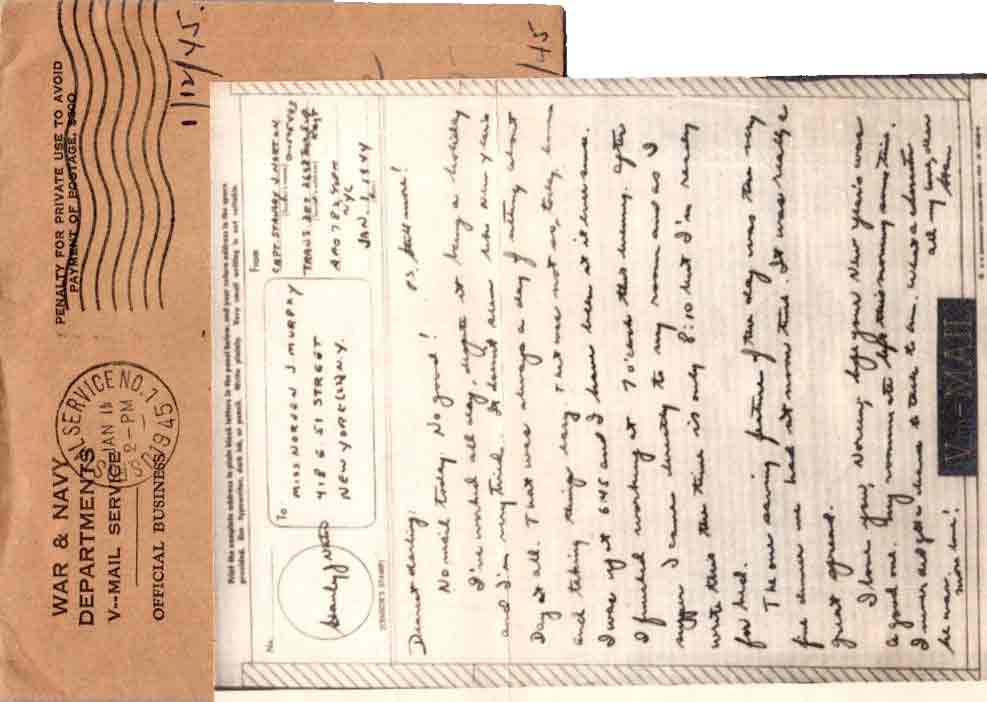 WAR & NAVY
DEPARTMENTS
V---MAIL SERVICE
OFFICIAL BUSINESS
PENALTY FOR PRIVATE USE TO AVOID
PAYMENT OF POSTAGE, $300
SERVICE NO. 1
JAN 11
2-PM
1945
1/12/45.
/45
Print the complete address in plain block letters in the panel below, and your return address in the space
provided. Use typewriter, dark ink, or pencil. Write plainly. Very small writing is not suitable.
No.
Stanley J
CENSOR'S STAMP
To
MISS NOREEN J. MURPHY
418 E 51 STREET
NEW YORK (22) N.Y.
From
CAPT. STANLEY J.
TRANS.
APO 782, % PM
NYC
JAN. 1, 1944
Dearest darling: P.S. Still more!
No mail today. No good!
I've worked all day, despite it being a holiday
and I'm my tired. It doesn't seem like New Year's
Day at all. That was always a day of eating
and taking things easy. That was not so, today, hence
I was up at 6:45 and I have been at it ever since.
I finished working at 7 o'clock this evening. After
supper I came directly to my room and as I
write this the time is only 8:10 but I'm ready
for bed.
The one saving feature of the day was the
fine dinner we had at noon time. It was really a
great spread.
I love you, Noreen, hope your New Year's was
a good one. My roommate left this morning
I never did get a chance to talk to him. What a character
he was. all my love, dear
more love! Stan
V---MAIL